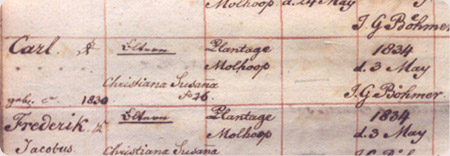 Molhoop d. 14 May
J. G Böhmer
Carl Eltern Plantage 1834
Molhoop d. 3 May
Christiana Susana J. G Böhmer.
geb. 1830 26.
Frederik Eltern Plantage 1834
Molhoop d. 3 May
Jacobus. Christiana Susana